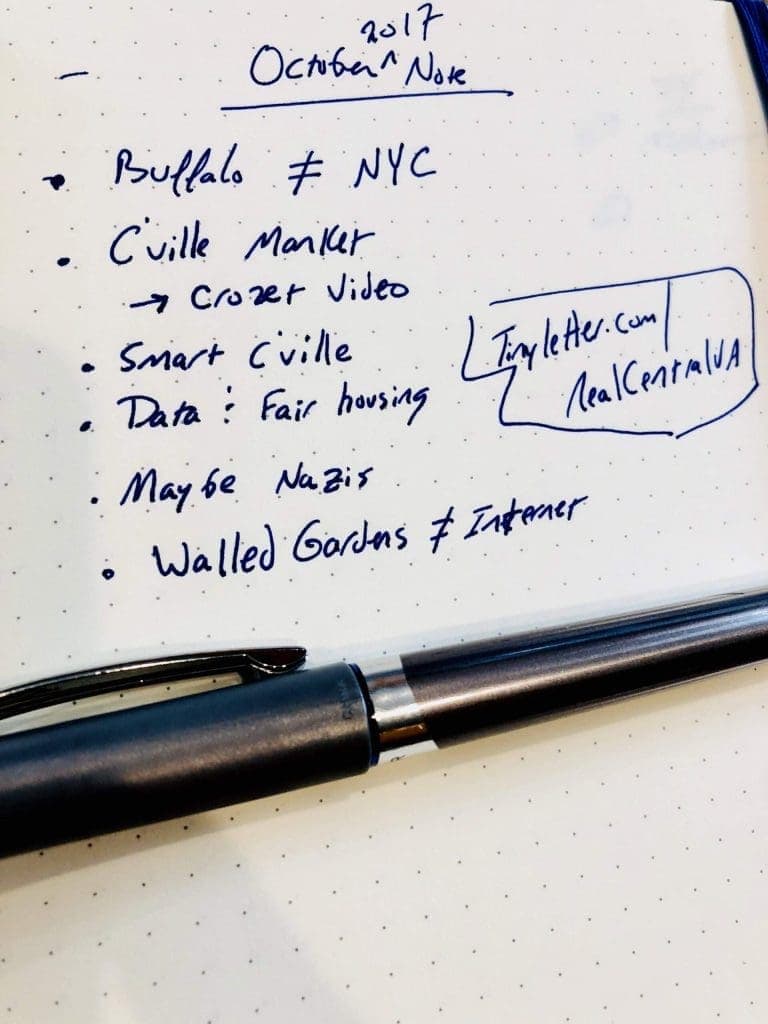 2017
- October ^ Note
• Buffalo ≠ NYC
• C'ville Market
→ Crozet Video
• Smart C'ville
• Data : Fair housing
• Maybe Nazis
• Walled Gardens ≠ Internet
Tinyletter.com/
RealCentralVA